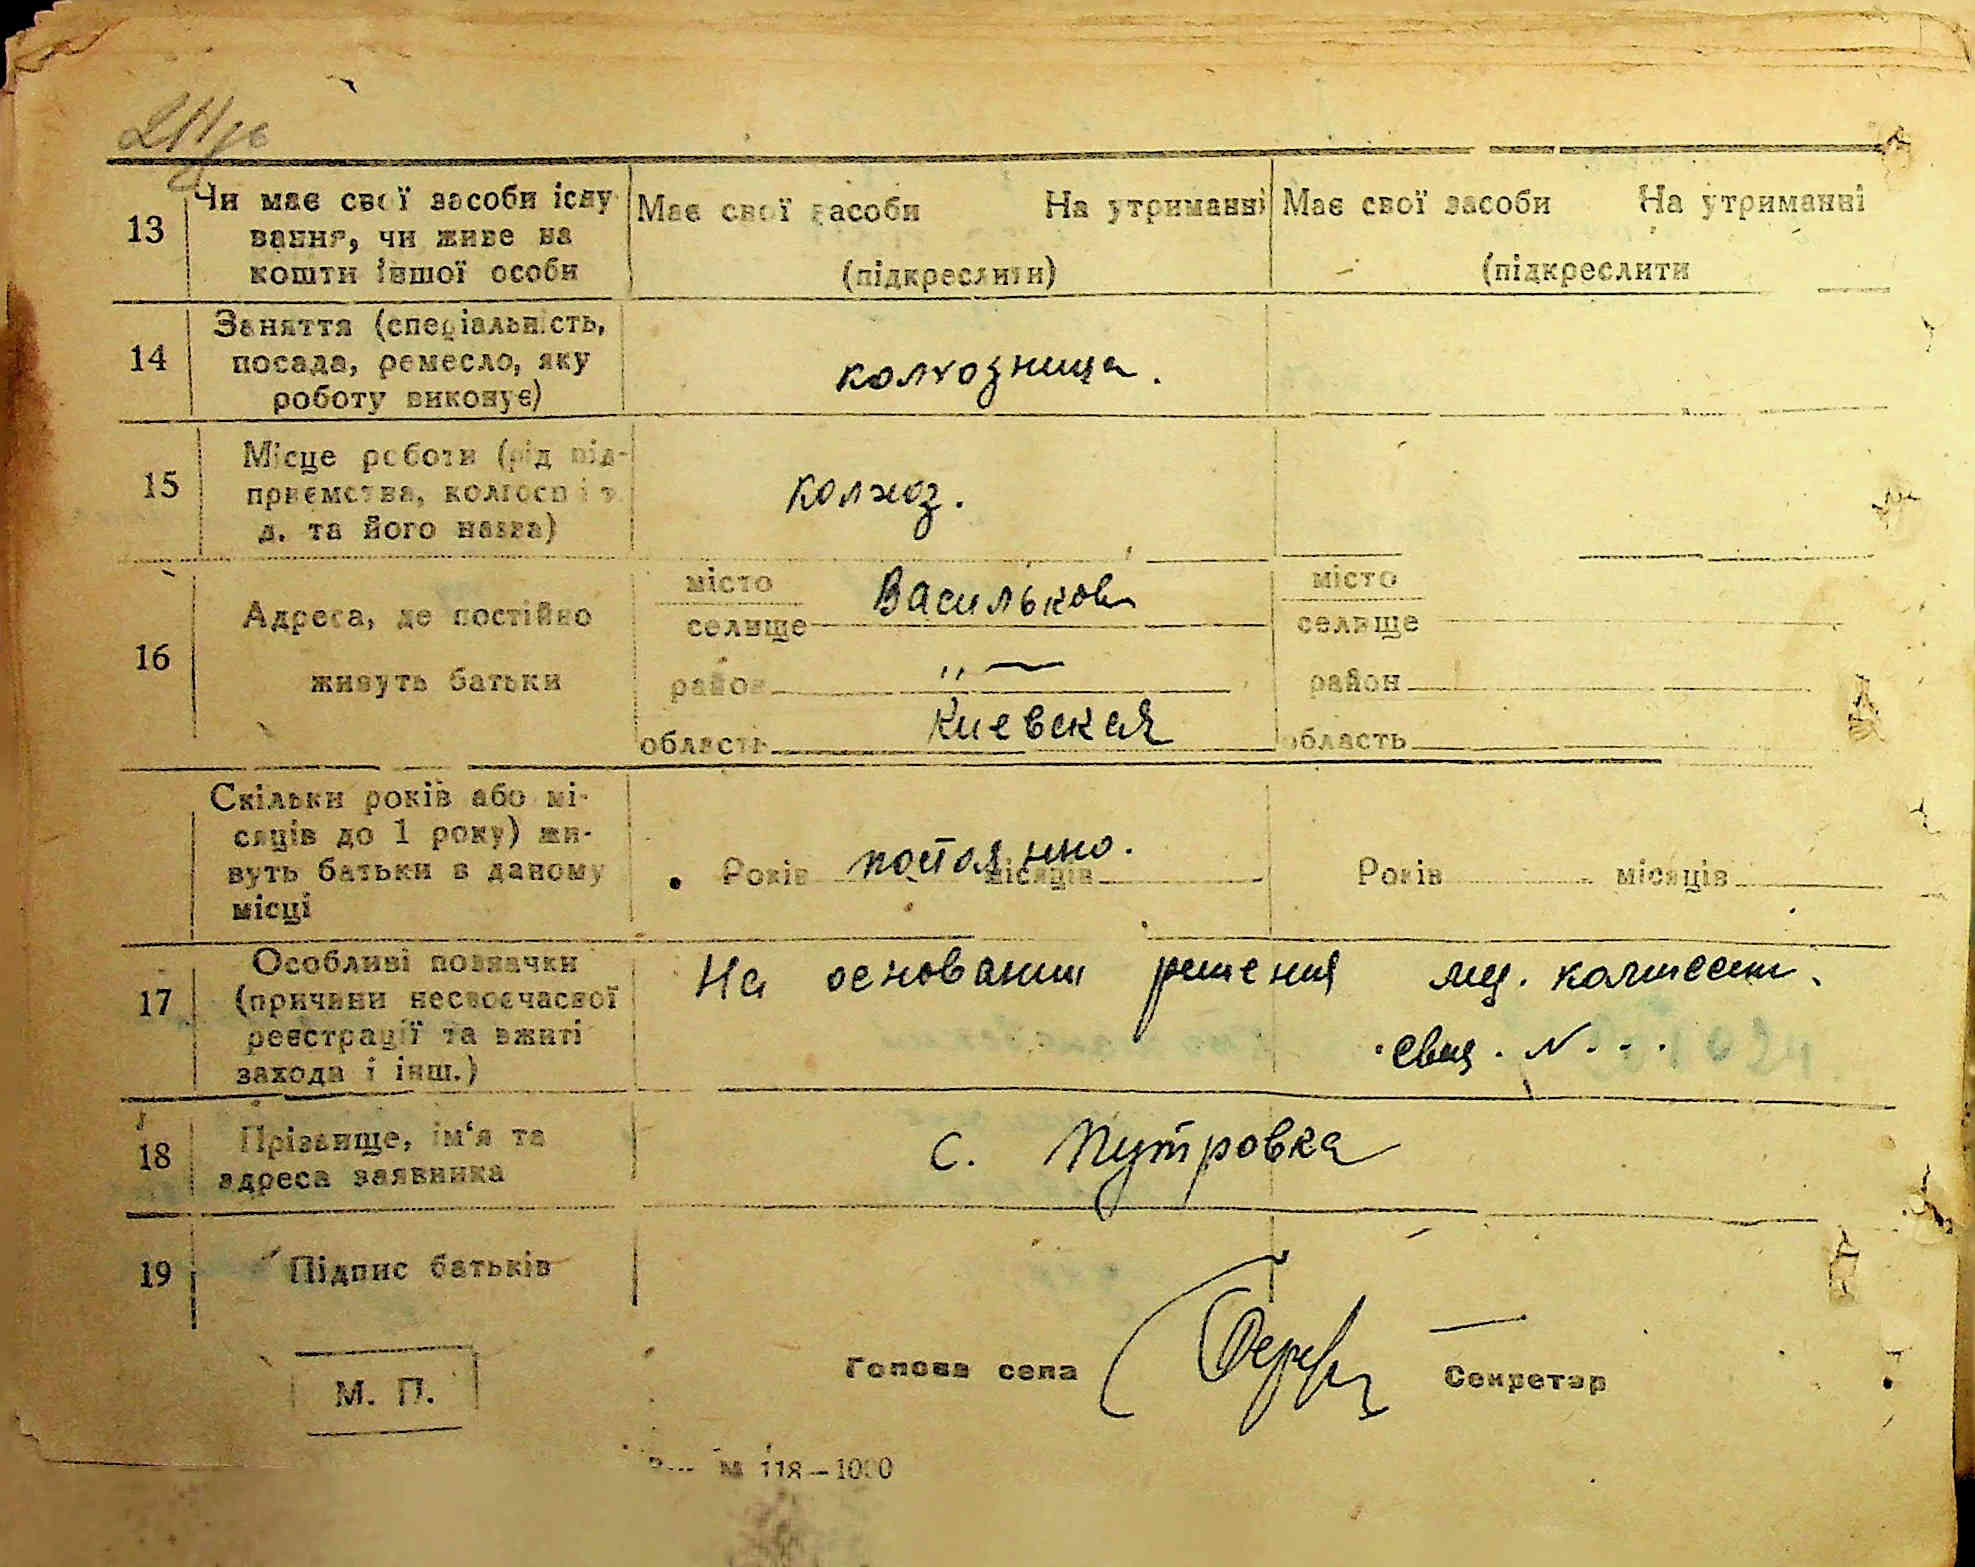 13
Чи має свої засоби існу
вання, чи живе на
кошти іншої особи
Має свої засоби На утриманні
(підкреслити)
Має свої засоби На утриманні
(підкреслити
14
Заняття (спеціальність,
посада, ремесло, яку
роботу виконує)
колхозница.
15
Місце роботи (рід під-
приємства, колгосп і т.
д. та його назва)
колхоз.
16
Адреса, де постійно
живуть батьки
місто
селище
Васильков
район
"—
область
Киевская
місто
селище
район
область
Скільки років або мі-
сяців до 1 року) жи-
вуть батьки в даному
місці
Років постоянно. місяців
Років місяців
17
Особливі позначки
(причини несвоєчасної
реєстрації та вжиті
захода і інш.)
На основании решения
свид. N...
18
Прізвище, ім'я та
адреса заявника
с. Путровка
19
Підпис батьків
М. П.
Голова села
Секретар
118—1000